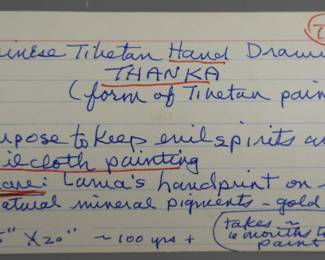 T
inese Tibetan Hand Drawn
THANKA
(form of Tibetan pain
rpose to keep evil spirits a
ilcloth painting
are: Lama's handprint on
atural mineral pigments - gold
5" x 20" ~ 100 yrs +
(takes ~
6 months to
paint